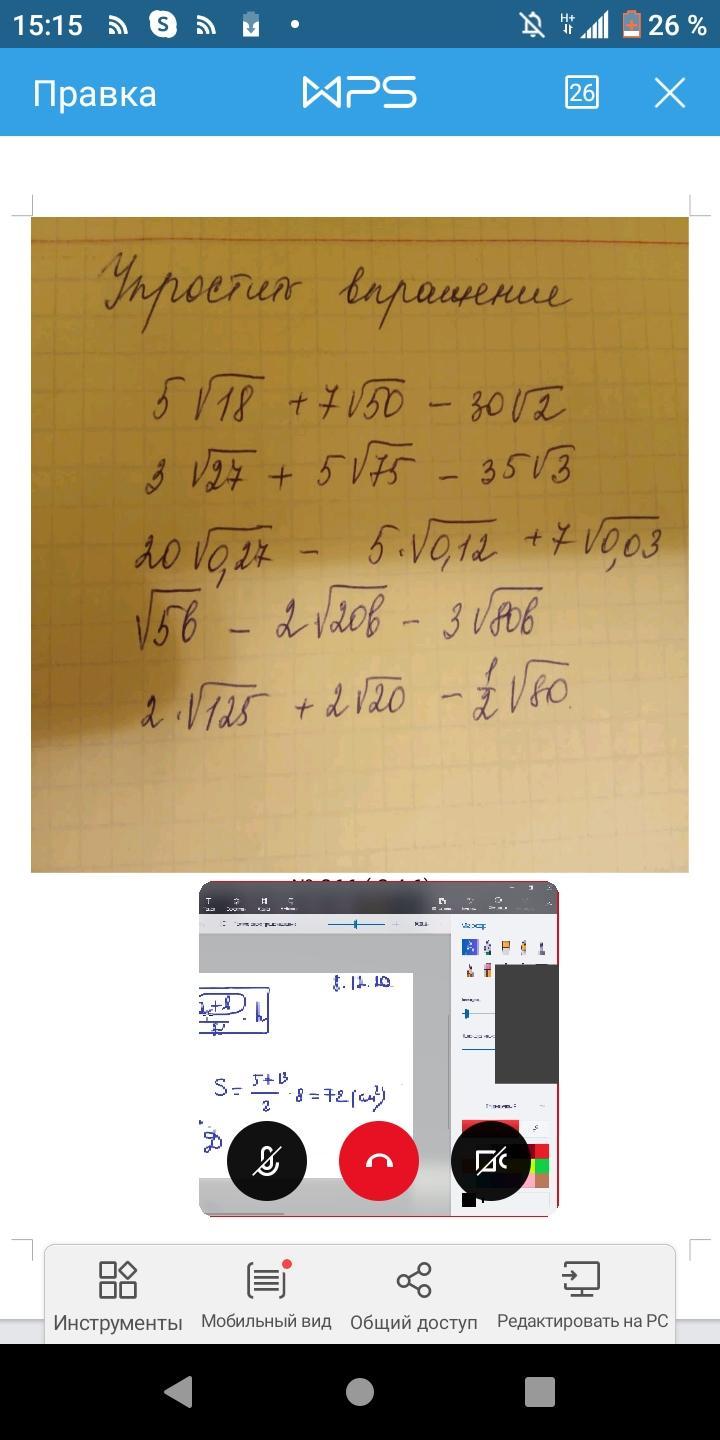 15:15 26 %
Правка WPS 26
Упростить впражение
5√18 + 7√50 − 30√2
3 √27 + 5√75 − 35√3
20√0,27 − 5·√0,12 + 7√0,03
√5b − 2√20b − 3√80b
2·√125 + 2√20 − 1/2 √80
8.12.20
S = 5+13/2 · 8 = 72 (см²)
Инструменты Мобильный вид Общий доступ Редактировать на PC